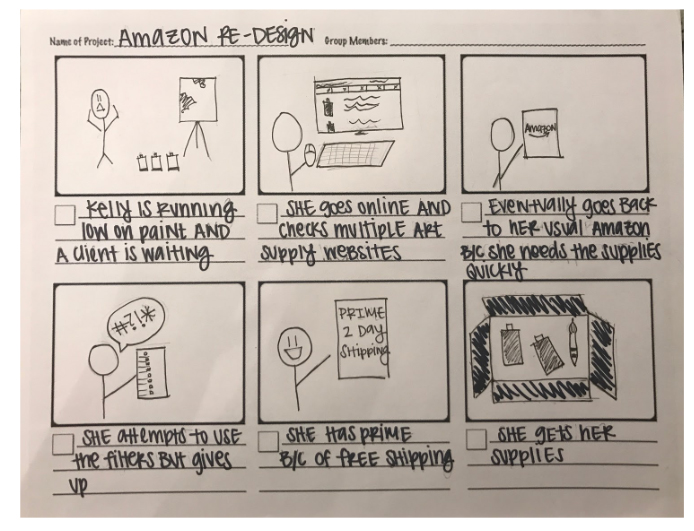 Name of Project: AMAZON RE-DESIGN Group Members:
AMAZON
KELLY IS RUNNING
low on paint AND
A client is waiting
SHE goes onlinE AND
checks multiple ART
supply websites
EVENtually goes BACK
to HER usual Amazon
B/C she needs the supplies
QUICKLY
#?!*
PRIME
2 Day
Shipping
SHE attempts to USE
the filters BUT gives
up
SHE Has prime
B/C of FREE SHipping
SHE gets HER
supplies